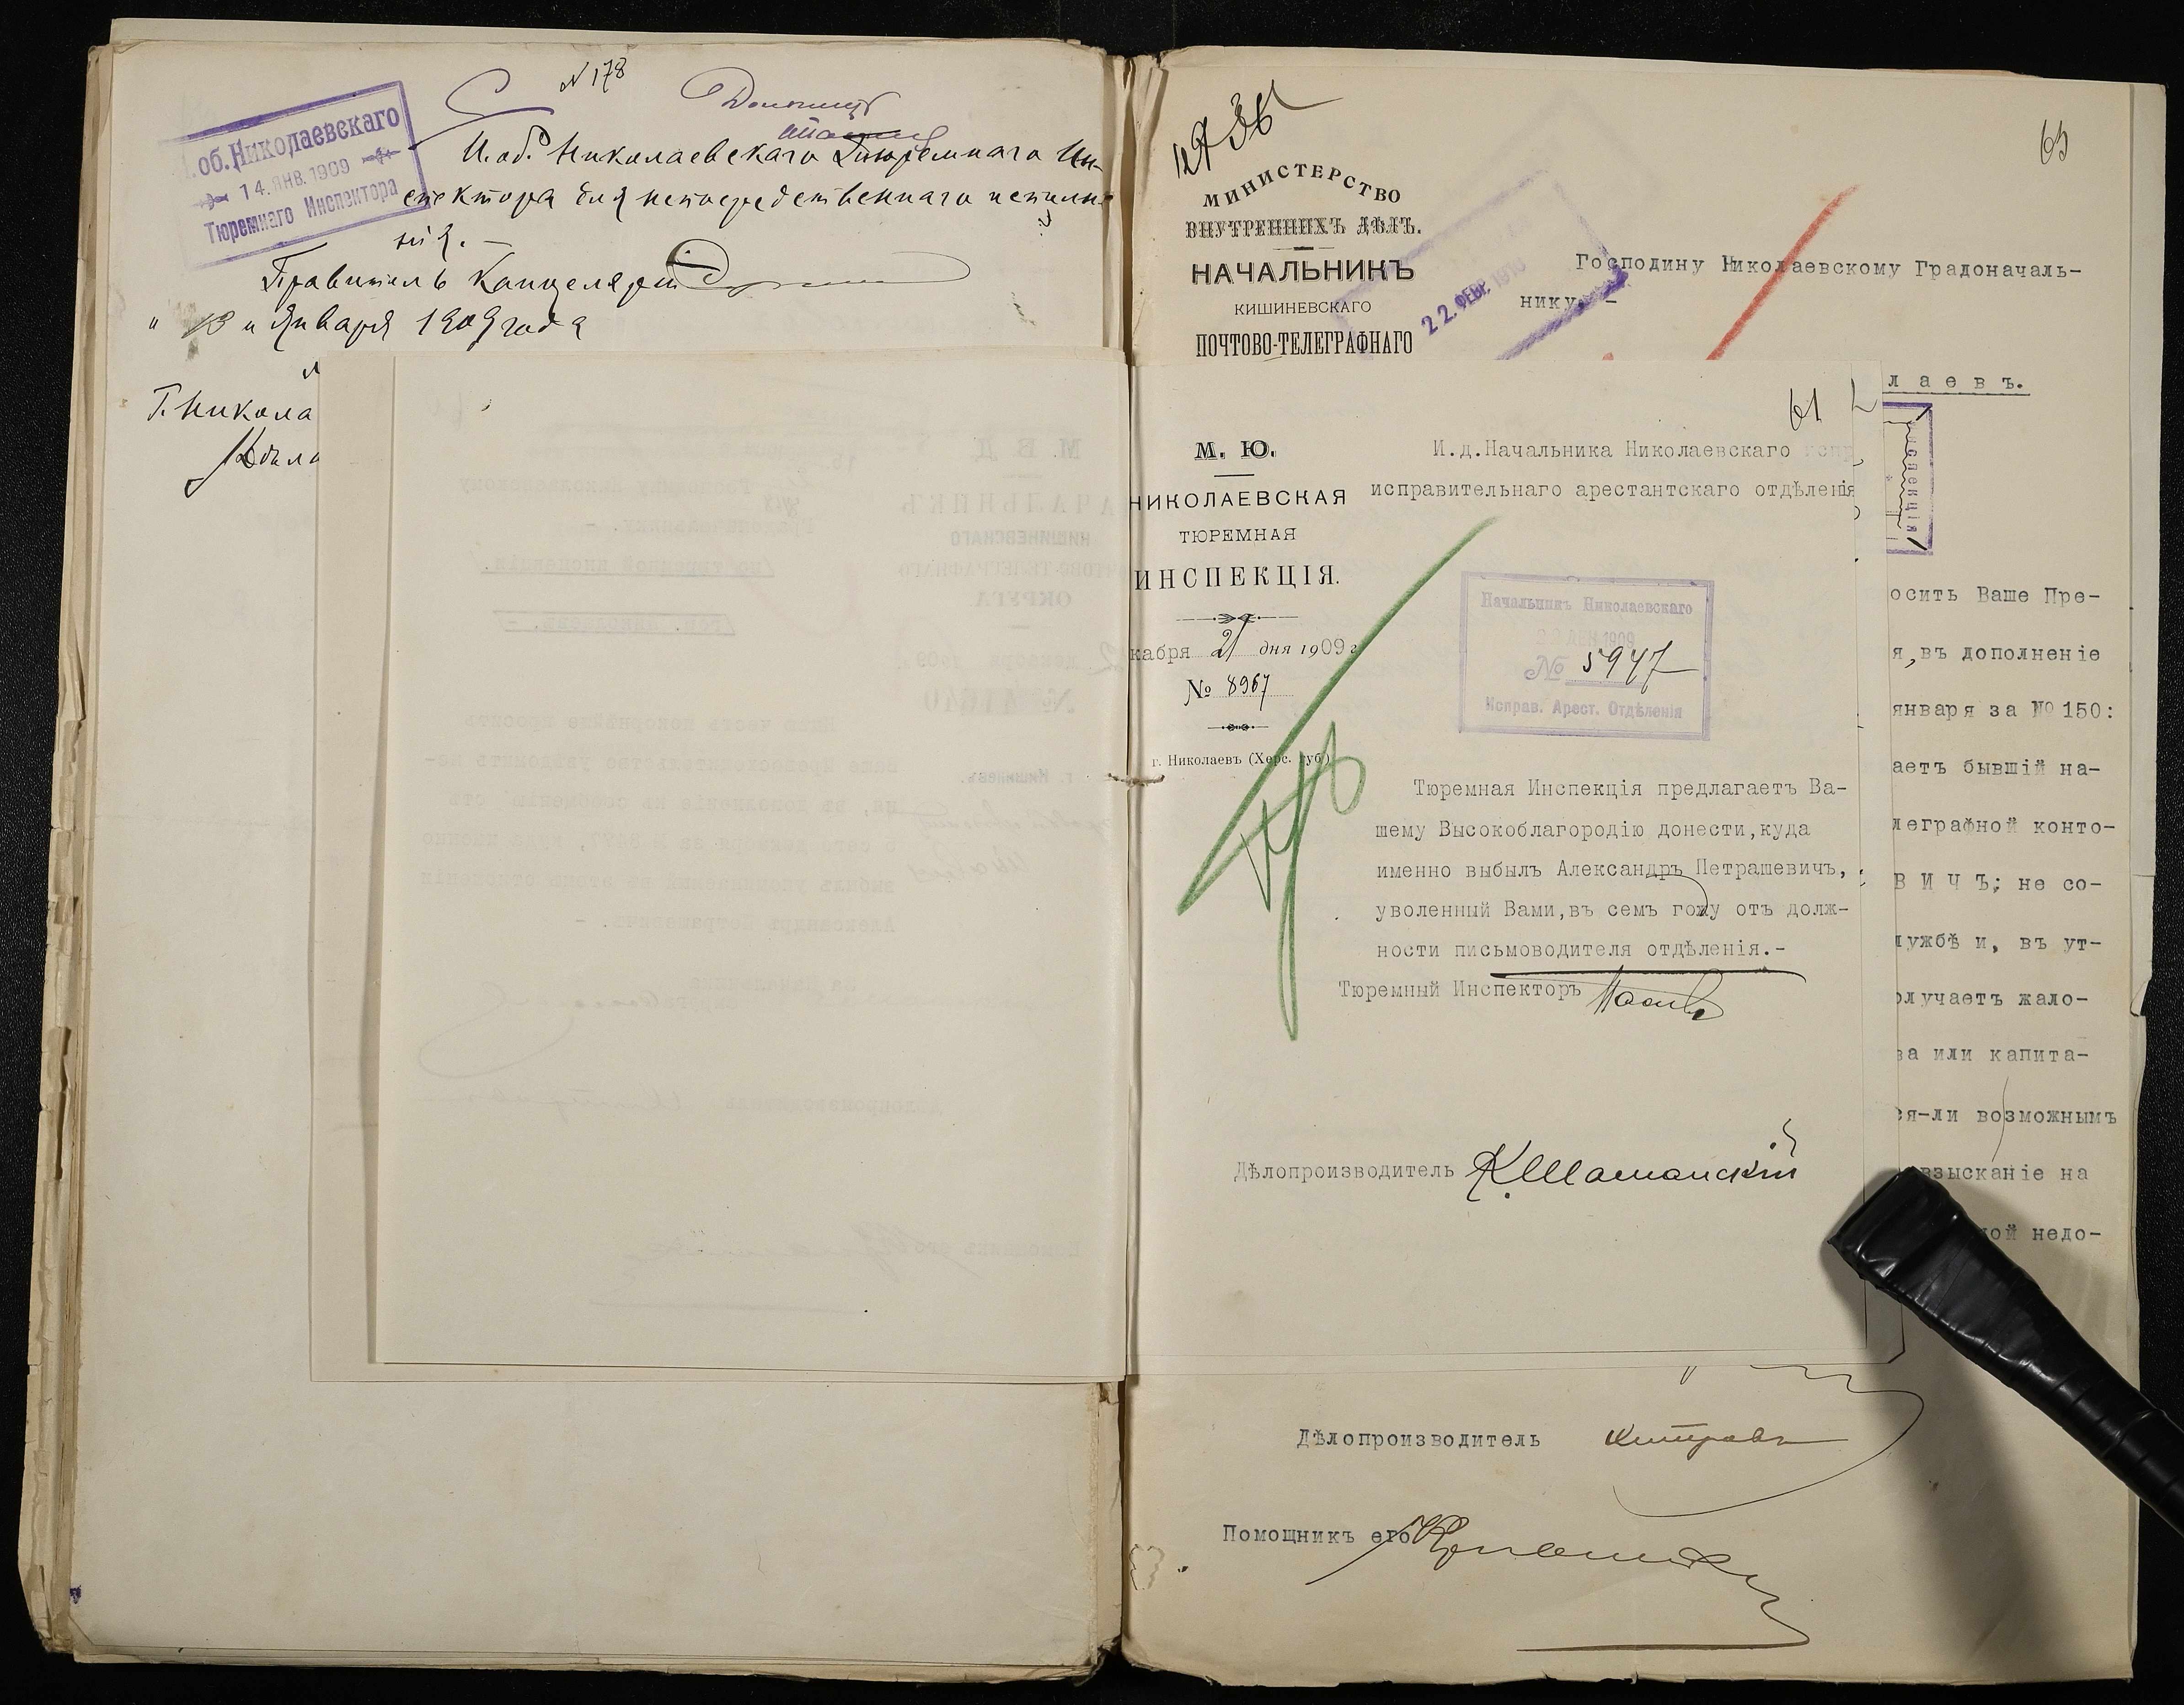 N 178
И. об. Николаевскаго
14. ЯНВ. 1909
Тюремнаго Инспектора
И. об. Николаевскаго Тюремнаго Ин-
спектора для непосредственнаго исполне-
нія. —
Правитель Канцеляріи
" 13 " Января 1909 года
Г. Никола
65
МИНИСТЕРСТВО
ВНУТРЕННИХЪ ДѢЛЪ.
НАЧАЛЬНИКЪ
КИШИНЕВСКАГО
ПОЧТОВО-ТЕЛЕГРАФНАГО
22. ФЕВР. 1910
Господину Николаевскому Градоначаль-
нику. –
лаевъ.
инспекція
осить Ваше Пре-
я,въ дополненіе
января за № 150:
аетъ бывшій на-
леграфной конто-
В И Ч Ъ; не со-
лужбѣ и, въ ут-
олучаетъ жало-
ва или капита-
ся-ли возможнымъ
взысканіе на
ой недо-
61
М. Ю.
НИКОЛАЕВСКАЯ
ТЮРЕМНАЯ
ИНСПЕКЦІЯ.
кабря 21 дня 1909 г
№ 8967
г. Николаевъ (Херс. губ.)
И.д.Начальника Николаевскаго
исправительнаго арестантскаго отдѣленія
Начальникъ Николаевскаго
22 ДЕК 1909
№ 5947
Исправ. Арест. Отдѣленія
Тюремная Инспекція предлагаетъ Ва-
шему Высокоблагородію донести,куда
именно выбылъ Александръ Петрашевичъ,
уволенный Вами,въ семъ году отъ долж-
ности письмоводителя отдѣленія.-
Тюремный Инспекторъ
Дѣлопроизводитель К.Шаманскій
Дѣлопроизводитель
Помощникъ его